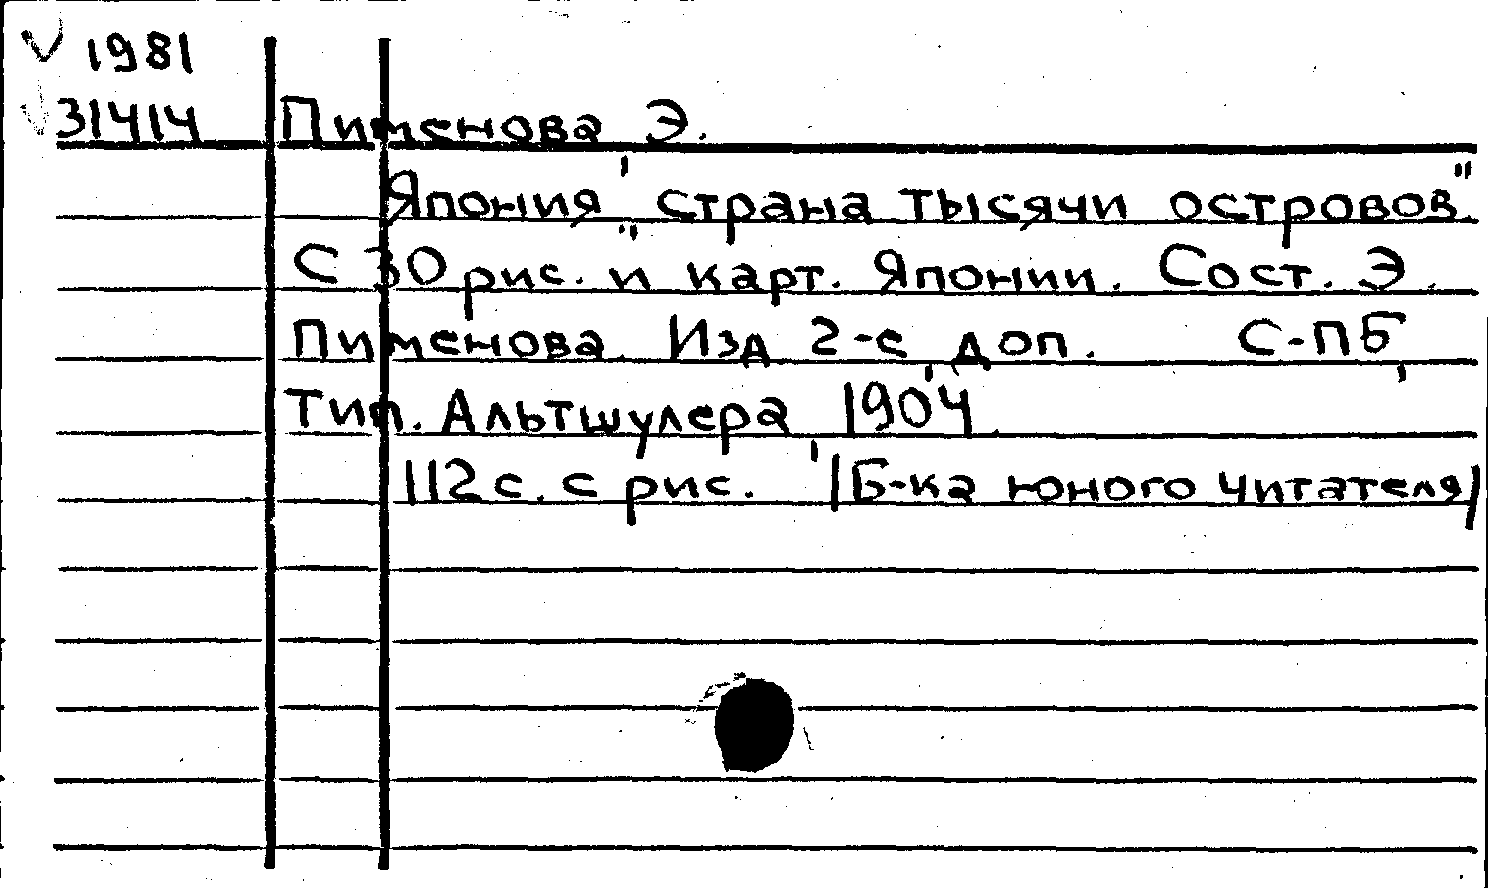 1981
31414 Пименова Э.
Япония "страна тысячи островов".
С 30 рис. и карт. Японии. Сост. Э.
Пименова. Изд 2-е, доп. С-ПБ,
тип. Альтшулера, 1904.
112 с. с рис. /Б-ка юного читателя/